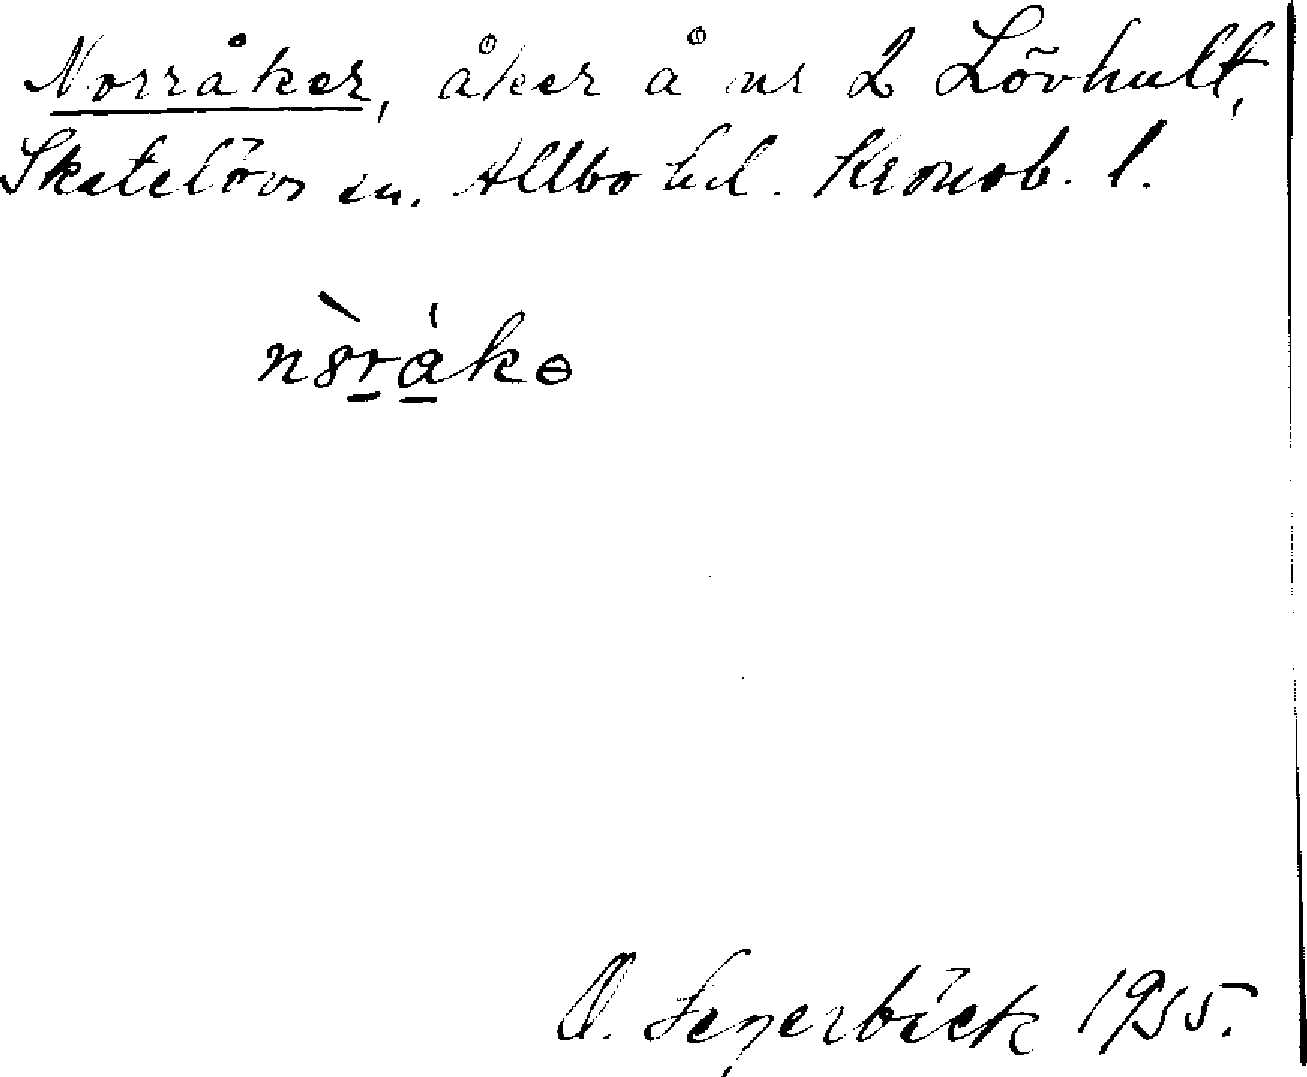 Norråker, åker å nr 2 Lövhult,
Skatelövs sn. Allbo hd. Kronob. l.
Segerbäck 1955.